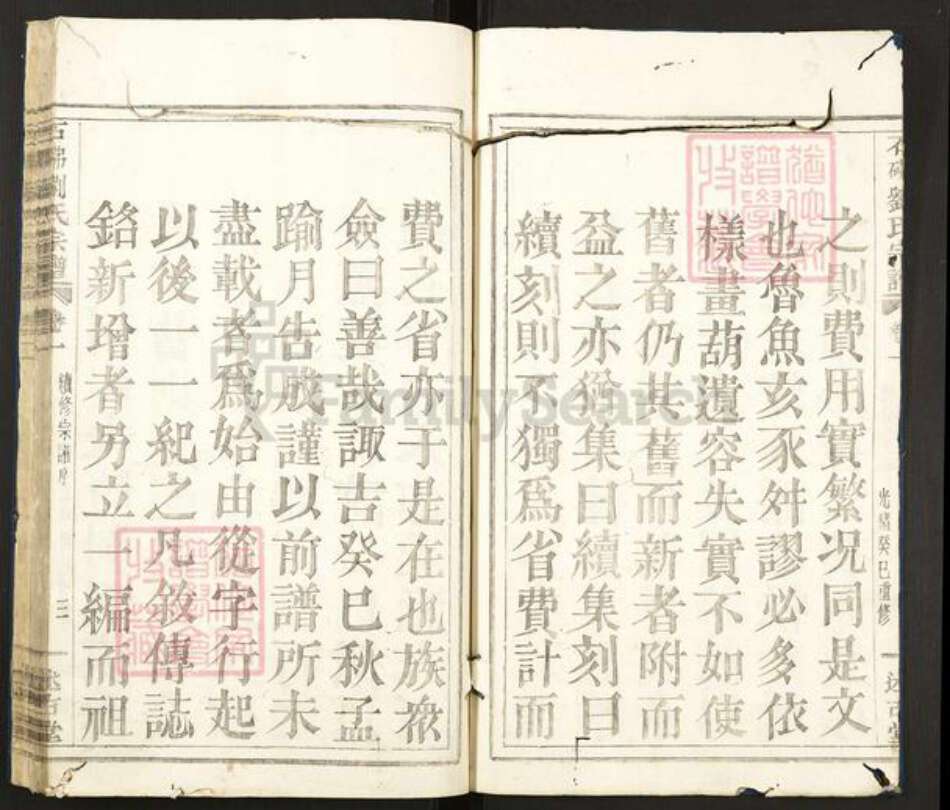 劉氏宗譜
光緒癸巳重修
之則費用實繁况同是文
也魯魚亥豕舛謬必多依
樣畫葫遺容失實不如使
舊者仍其舊而新者附而
益之亦從集曰續集刻曰
續刻則不獨爲省費計而
費之省亦于是在也族衆
僉曰善哉諏吉癸巳秋孟
踰月告成謹以前譜所未
盡載者爲始由從字行起
以後一一紀之凡敘傳誌
銘新增者另立一編而祖
劉氏宗譜
卷一
續修宗譜序
三
FamilySearch